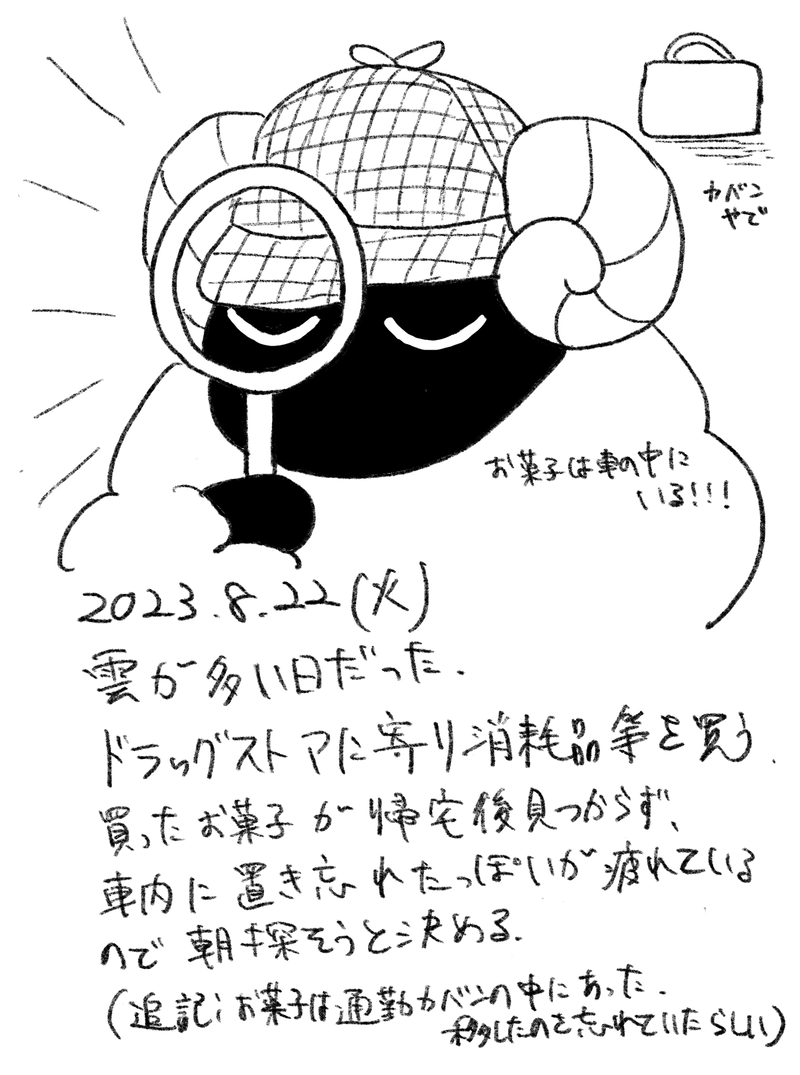 カバン
やで
お菓子は車の中に
いる!!!
2023.8.22(火)
雲が多い日だった.
ドラッグストアに寄り消耗品等を買う.
買ったお菓子が帰宅後見つからず、
車内に置き忘れたっぽいが疲れている
ので朝探そうと決める.
(追記:お菓子は通勤カバンの中にあった.
移したのを忘れていたらしい)